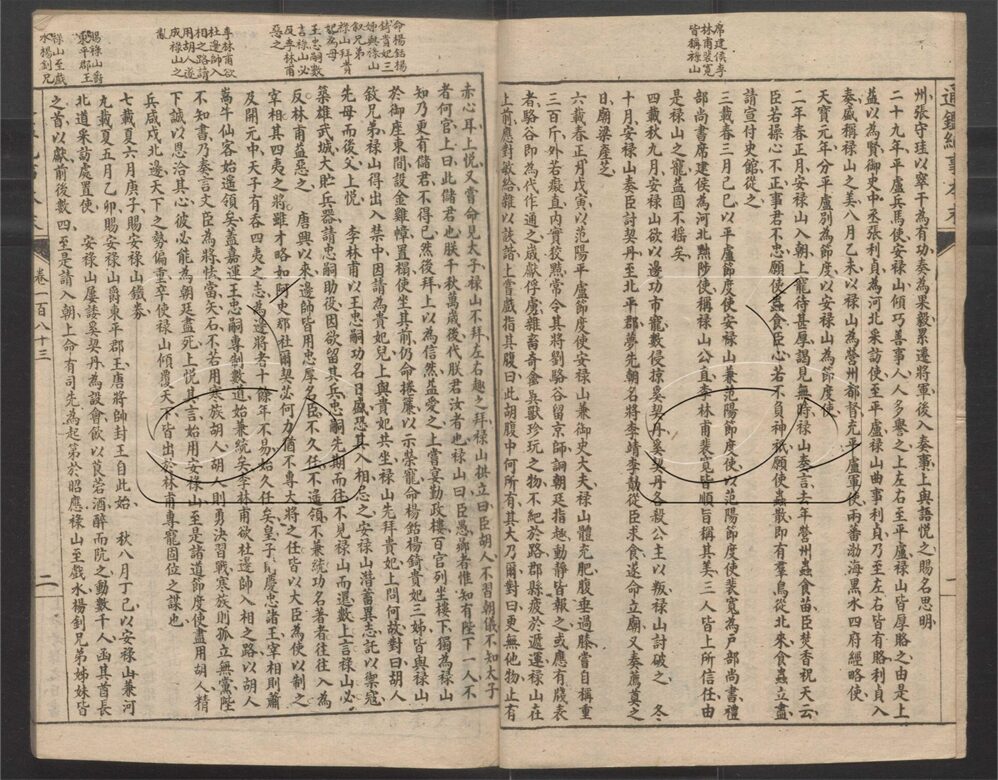 席建侯李
林甫裴寬
皆稱祿山
通鑑紀事本末
州張守珪以窣干為有功奏為果毅累遷將軍後入奏事上與語悅之賜名思明
二十九年平盧兵馬使安祿山傾巧善事人人多譽之上左右至平盧祿山皆厚賂之由是上
益以為賢御史中丞張利貞為河北采訪使至平盧祿山曲事利貞乃至左右皆有賂利貞入
奏盛稱祿山之美八月乙未以祿山為營州都督充平盧軍使兩蕃勃海黑水四府經略使
天寶元年分平盧別為節度以安祿山為節度使
二年春正月安祿山入朝上寵待甚厚謁見無時祿山奏言去年營州蟲食苗臣焚香祝天云
臣若操心不正事君不忠願使蟲食臣心若不負神祇願使蟲散即有羣鳥從北來食蟲立盡
請宣付史官從之
三載春三月己巳以平盧節度使安祿山兼范陽節度使以范陽節度使裴寬為戶部尚書禮
部尚書席建侯為河北黜陟使稱祿山公直李林甫裴寬皆順旨稱其美三人皆上所信任由
是祿山之寵益固不搖矣
四載秋九月安祿山欲以邊功市寵數侵掠奚契丹奚契丹各殺公主以叛祿山討破之 冬
十月安祿山奏臣討契丹至北平郡夢先朝名將李靖李勣從臣求食遂命立廟又奏薦奠之
日廟梁產芝
六載春正月戊寅以范陽平盧節度使安祿山兼御史大夫祿山體充肥腹垂過膝嘗自稱重
三百斤外若癡直內實狡黠常令其將劉駱谷留京師詗朝廷指趣動靜皆報之或應有牋表
者駱谷即為代作通之歲獻俘虜雜畜奇禽異獸珍玩之物不絕於路郡縣疲於遞運祿山在
上前應對敏給雜以詼諧上嘗戲指其腹曰此胡腹中何所有其大乃爾對曰更無他物止有
命楊銛楊
錡貴妃三
姊與祿山
叙兄弟
祿山拜貴
妃為母
王忠嗣數
言祿山必
反李林甫
惡之
李林甫欲
杜邊帥入
相之路請
用胡人遂
成祿山之
亂
賜祿山爵
東平郡王
祿山至戲
水楊釗兄
赤心耳上悅又嘗命見太子祿山不拜左右趣之拜祿山拱立曰臣胡人不習朝儀不知太子
者何官上曰此儲君也朕千秋萬歲後代朕君汝者也祿山曰臣愚曏者惟知有陛下一人不
知乃更有儲君不得已然後拜上以為信然益愛之上嘗宴勤政樓百官列坐樓下獨為祿山
於御座東間設金雞幛置榻使坐其前仍命捲簾以示榮寵命楊銛楊錡貴妃三姊皆與祿山
敘兄弟祿山得出入禁中因請為貴妃兒上與貴妃共坐祿山先拜貴妃上問何故對曰胡人
先母而後父上悅 李林甫以王忠嗣功名日盛恐其入相忌之安祿山潛蓄異志託以禦寇
築雄武城大貯兵器請忠嗣助役因欲留其兵忠嗣先期而往不見祿山而還數上言祿山必
反林甫益惡之 唐興以來邊帥皆用忠厚名臣不久任不遙領不兼統功名著者往往入為
宰相其四夷之將雖才略如阿史那社爾契苾何力猶不專大將之任皆以大臣為使以制之
及開元中天子有吞四夷之志為邊將者十餘年不易始久任矣皇子則慶忠諸王宰相則蕭
嵩牛仙客始遙領矣蓋嘉運王忠嗣專制數道始兼統矣李林甫欲杜邊帥入相之路以胡人
不知書乃奏言文臣為將怯當矢石不若用寒族胡人胡人則勇決習戰寒族則孤立無黨陛
下誠以恩洽其心彼必能為朝廷盡死上悅其言始用安祿山至是諸道節度使盡用胡人精
兵咸戍北邊天下之勢偏重卒使祿山傾覆天下皆出於林甫專寵固位之謀也
七載夏六月庚子賜安祿山鐵券
九載夏五月乙卯賜安祿山爵東平郡王唐將帥封王自此始 秋八月丁巳以安祿山兼河
北道采訪處置使 安祿山屢誘奚契丹為設會飲以莨菪酒醉而阬之動數千人函其酋長
之首以獻前後數四至是請入朝上命有司先為起第於昭應祿山至戲水楊釗兄弟姊妹皆
卷一百八十三
二